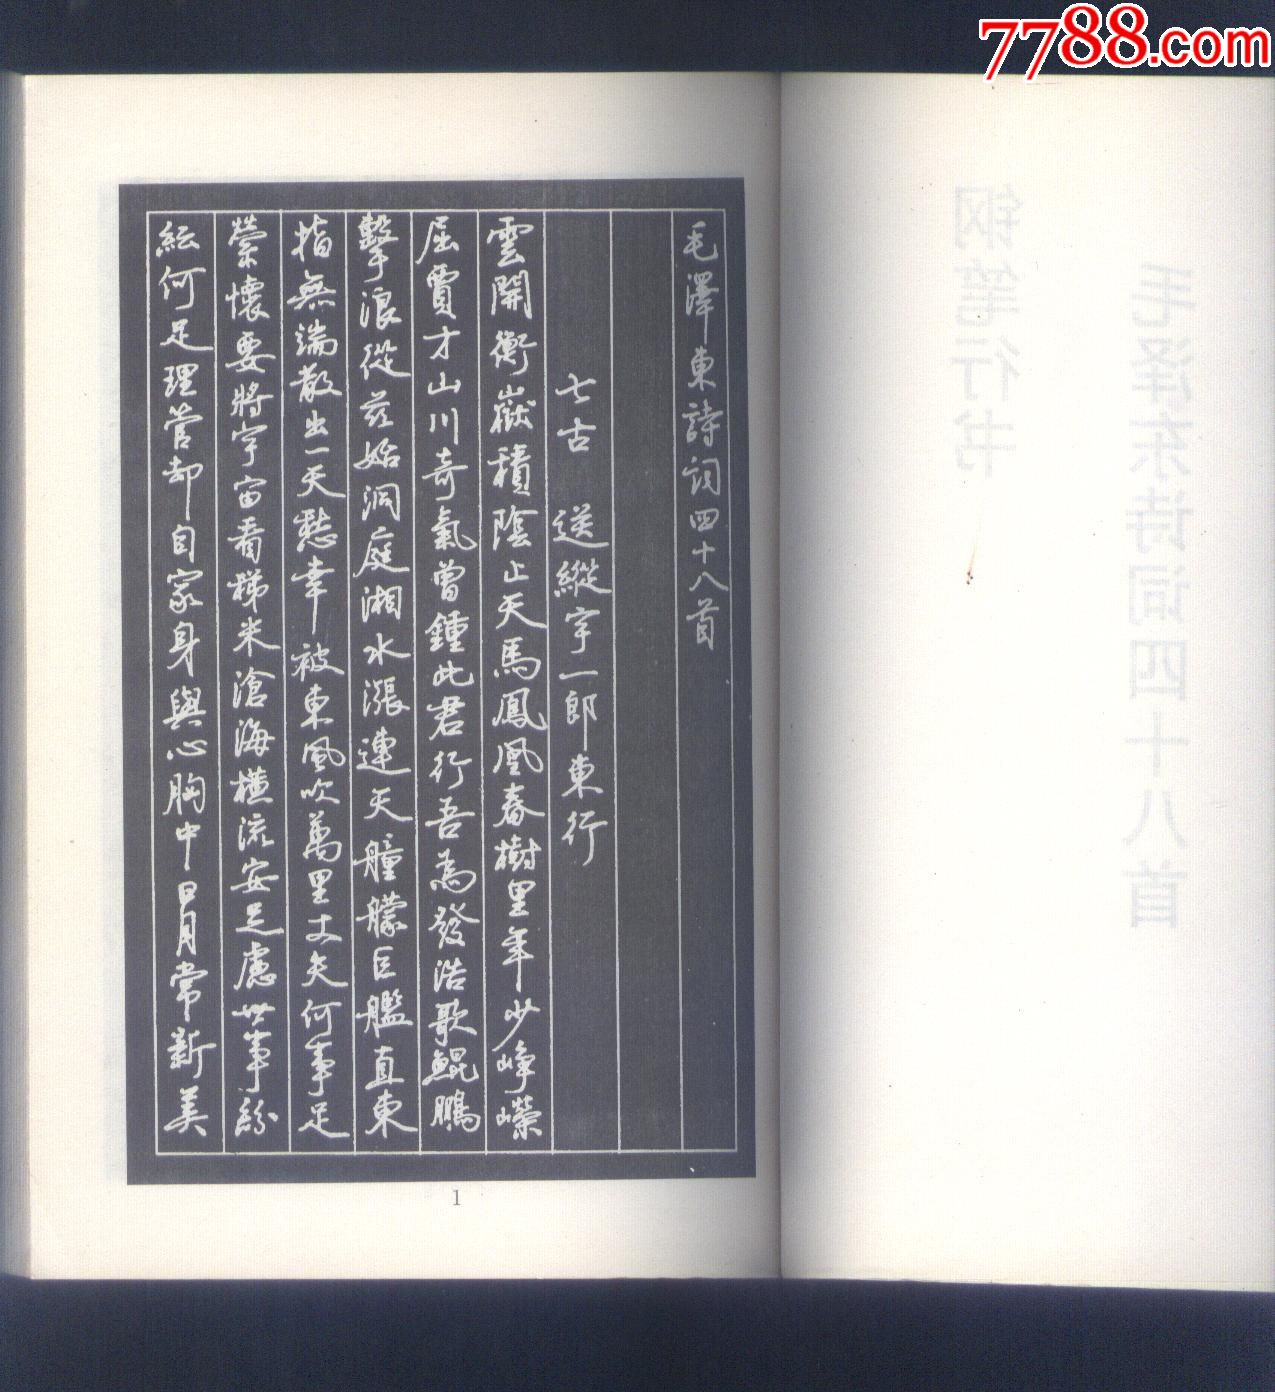 7788.com
毛澤東詩詞四十八首
七古 送縱宇一郎東行
雲開衡嶽積陰止天馬鳳凰春樹里年少崢嶸
屈賈才山川奇氣曾鍾此君行吾為發浩歌鯤鵬
擊浪從茲始洞庭湘水漲連天艟艨巨艦直東
指無端散出一天愁幸被東風吹萬里丈夫何事足
縈懷要將宇宙看稊米滄海橫流安足慮世事紛
紜何足理管却自家身與心胸中日月常新美
1
毛泽东诗词四十八首
钢笔行书